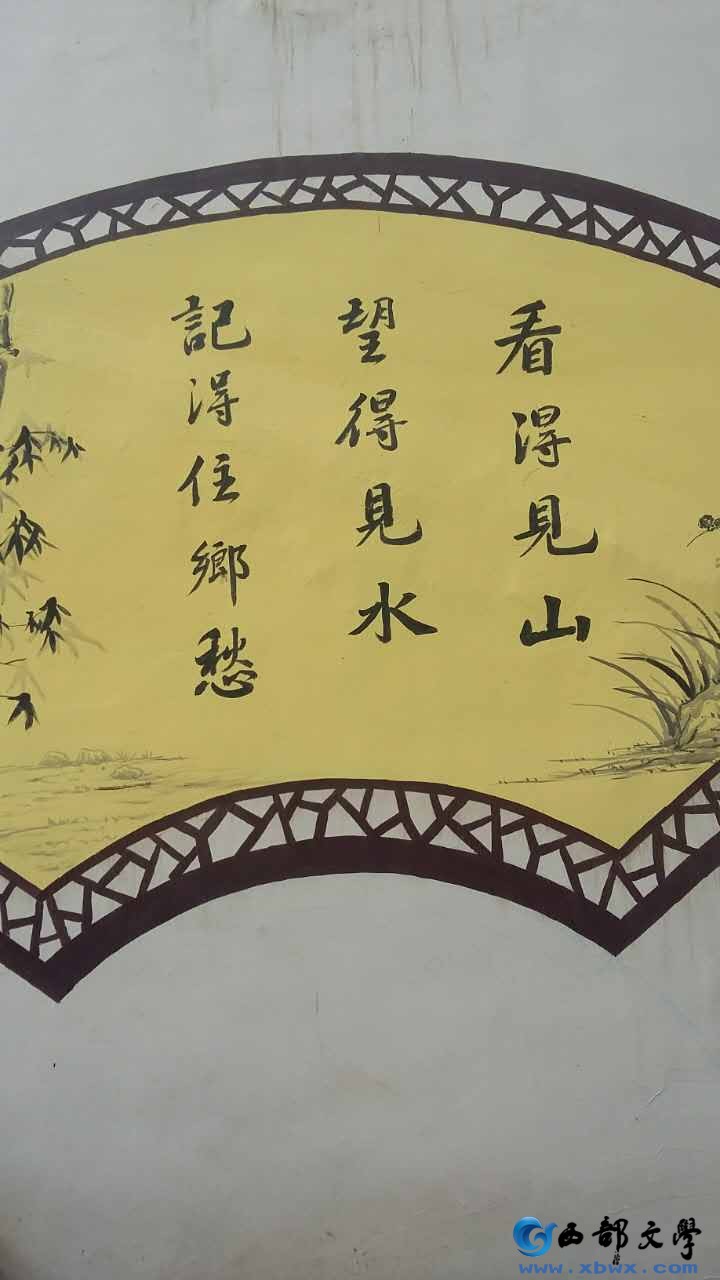 看得見山
望得見水
記得住鄉愁
西部文學
www.xbwx.com